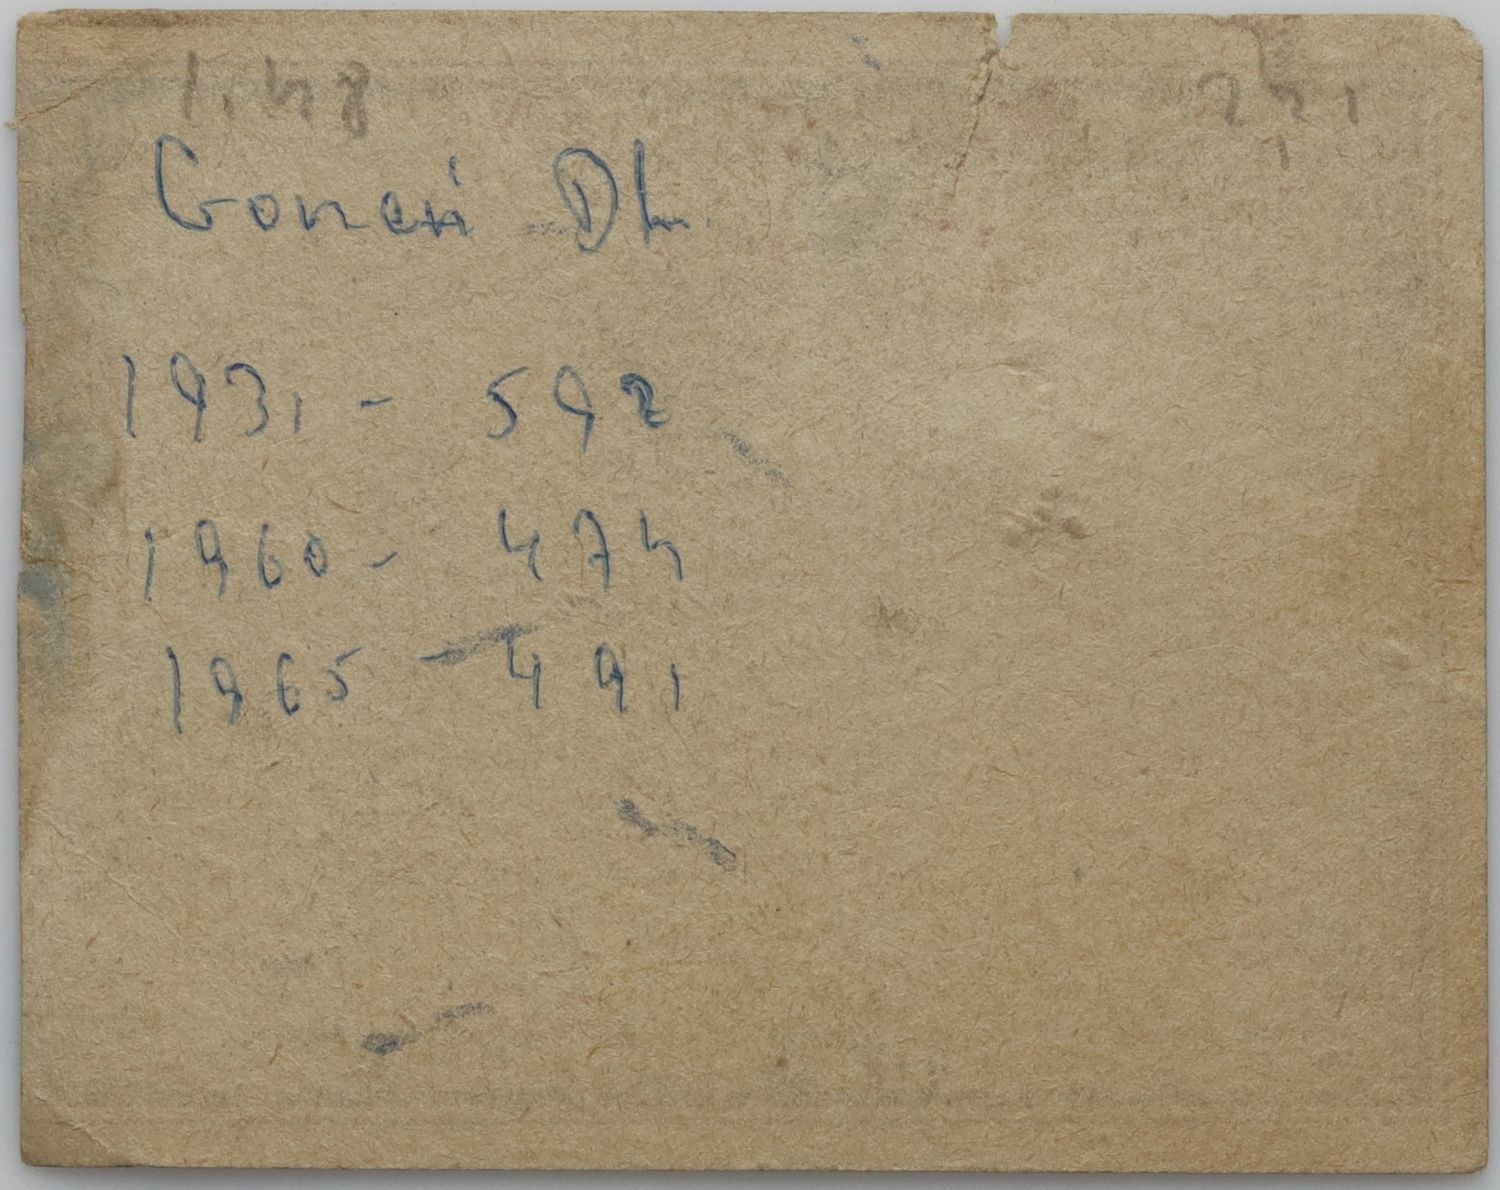 1.48 221
Gonczi Dh.
1931 - 592
1960 - 474
1965 - 491